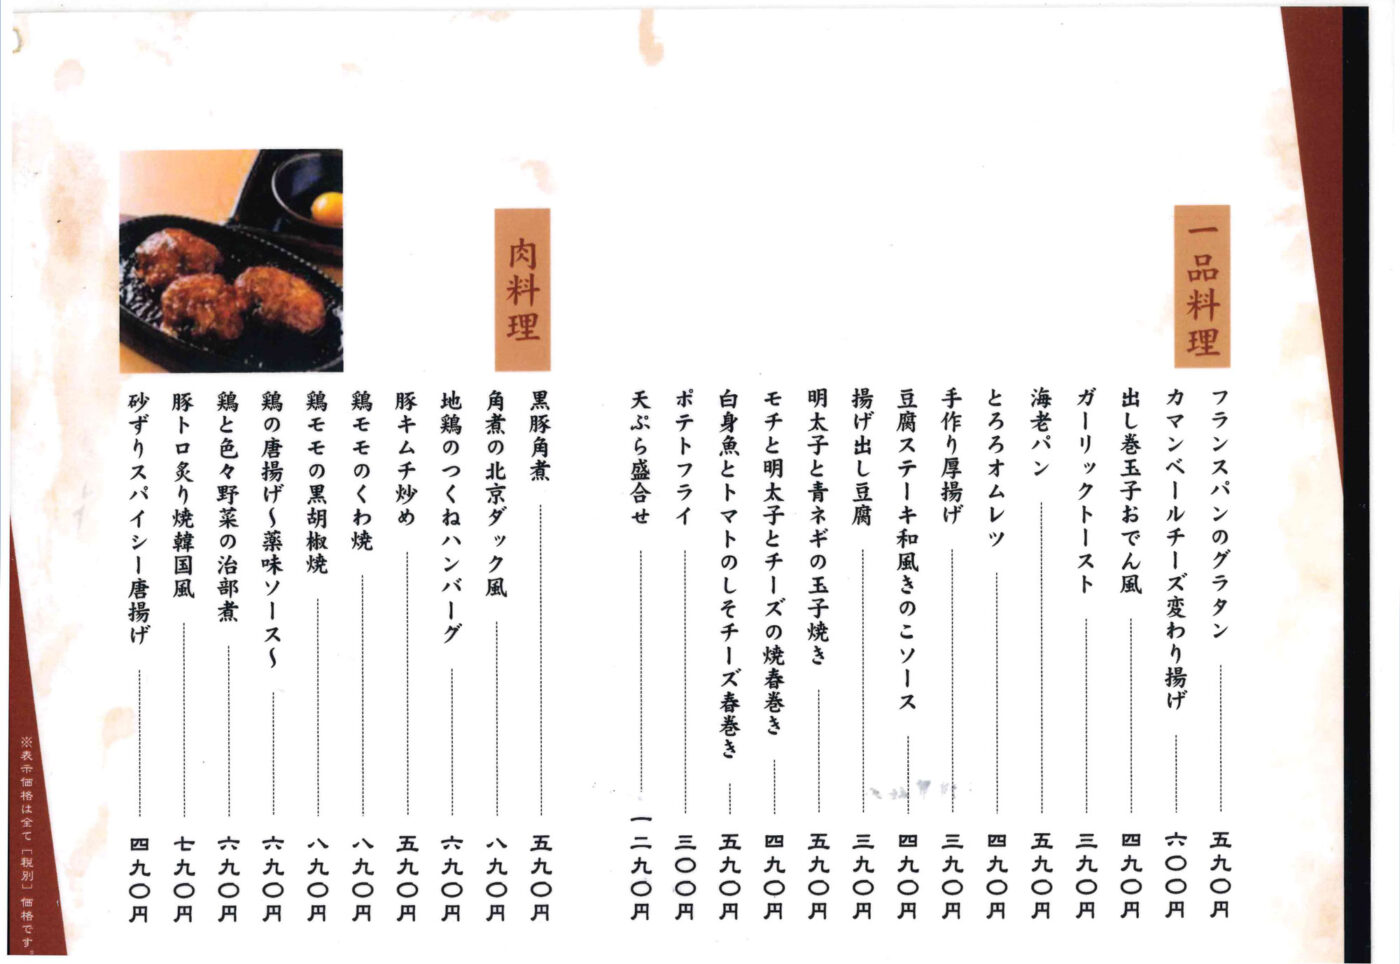 一品料理
フランスパンのグラタン 五九〇円
カマンベールチーズ変わり揚げ 六〇〇円
出し巻玉子おでん風 四九〇円
ガーリックトースト 三九〇円
海老パン 五九〇円
とろろオムレツ 四九〇円
手作り厚揚げ 三九〇円
豆腐ステーキ和風きのこソース 四九〇円
揚げ出し豆腐 三九〇円
明太子と青ネギの玉子焼き 五九〇円
モチと明太子とチーズの焼春巻き 四九〇円
白身魚とトマトのしそチーズ春巻き 五九〇円
ポテトフライ 三〇〇円
天ぷら盛合せ 一二九〇円
肉料理
黒豚角煮 五九〇円
角煮の北京ダック風 八九〇円
地鶏のつくねハンバーグ 六九〇円
豚キムチ炒め 五九〇円
鶏モモのくわ焼 八九〇円
鶏モモの黒胡椒焼 八九〇円
鶏の唐揚げ〜薬味ソース〜 六九〇円
鶏と色々野菜の治部煮 六九〇円
豚トロ炙り焼韓国風 七九〇円
砂ずりスパイシー唐揚げ 四九〇円
※表示価格は全て［税別］価格です。